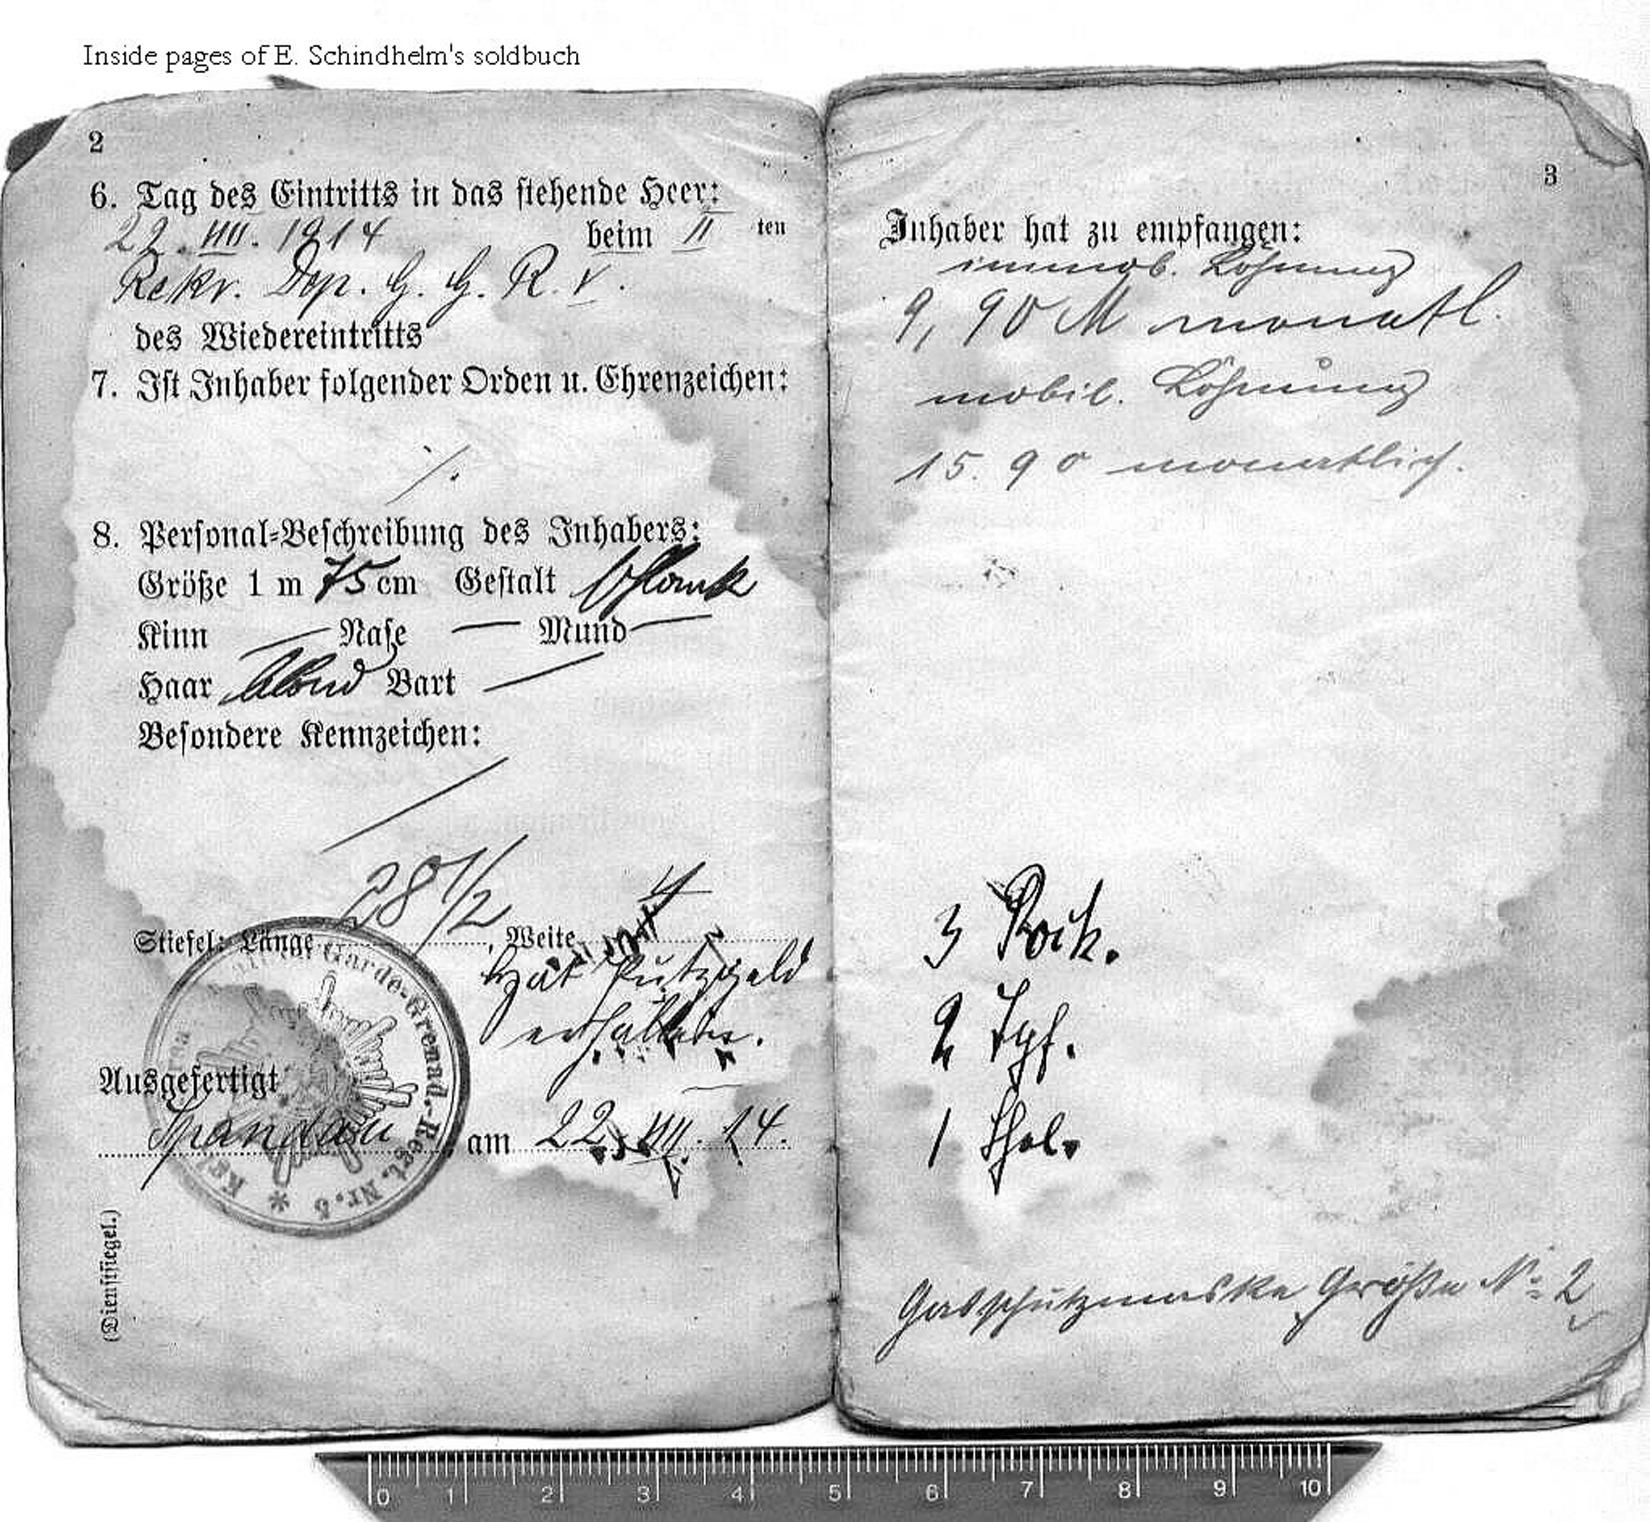 Inside pages of E. Schindhelm's soldbuch
2
6. Tag des Eintritts in das stehende Heer:
22. VIII. 1914 beim II ten
Rekr. Dep. G. G. R. V.
des Wiedereintritts
7. Ist Inhaber folgender Orden u. Ehrenzeichen:
8. Personal-Beschreibung des Inhabers:
Größe 1 m 75 cm Gestalt schlank
Kinn — Nase — Mund —
Haar blond Bart —
Besondere Kennzeichen:
28 1/2 4
Stiefel: Länge, Weite
Hat Putzgeld
erhalten.
Ausgefertigt
Spandau, am 22. VIII. 14.
Garde-Grenad.-Regt. Nr. 5 *
(Dienstsiegel.)
3
Inhaber hat zu empfangen:
immob. Löhnung
9,90 M monatl.
mobil. Löhnung
15.90 monatlich.
3 Rock.
2
1
Gasschutzmaske Größe No 2
0 1 2 3 4 5 6 7 8 9 10